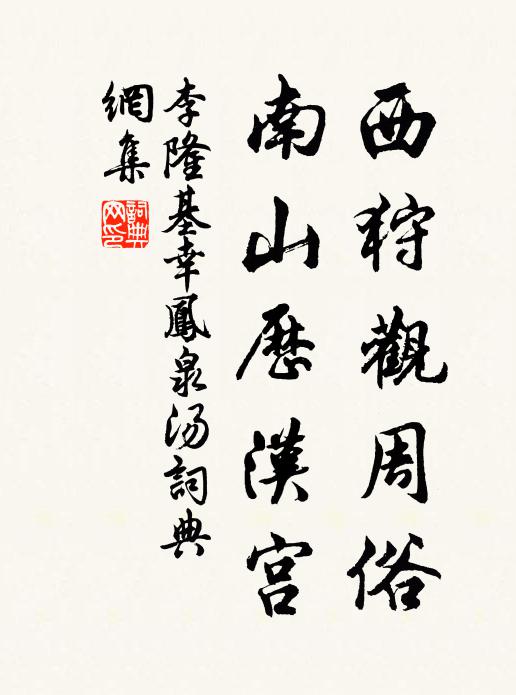 西狩觀周俗
南山歷漢宫
李隆基幸鳳泉汤詞典
網集
詞典網印